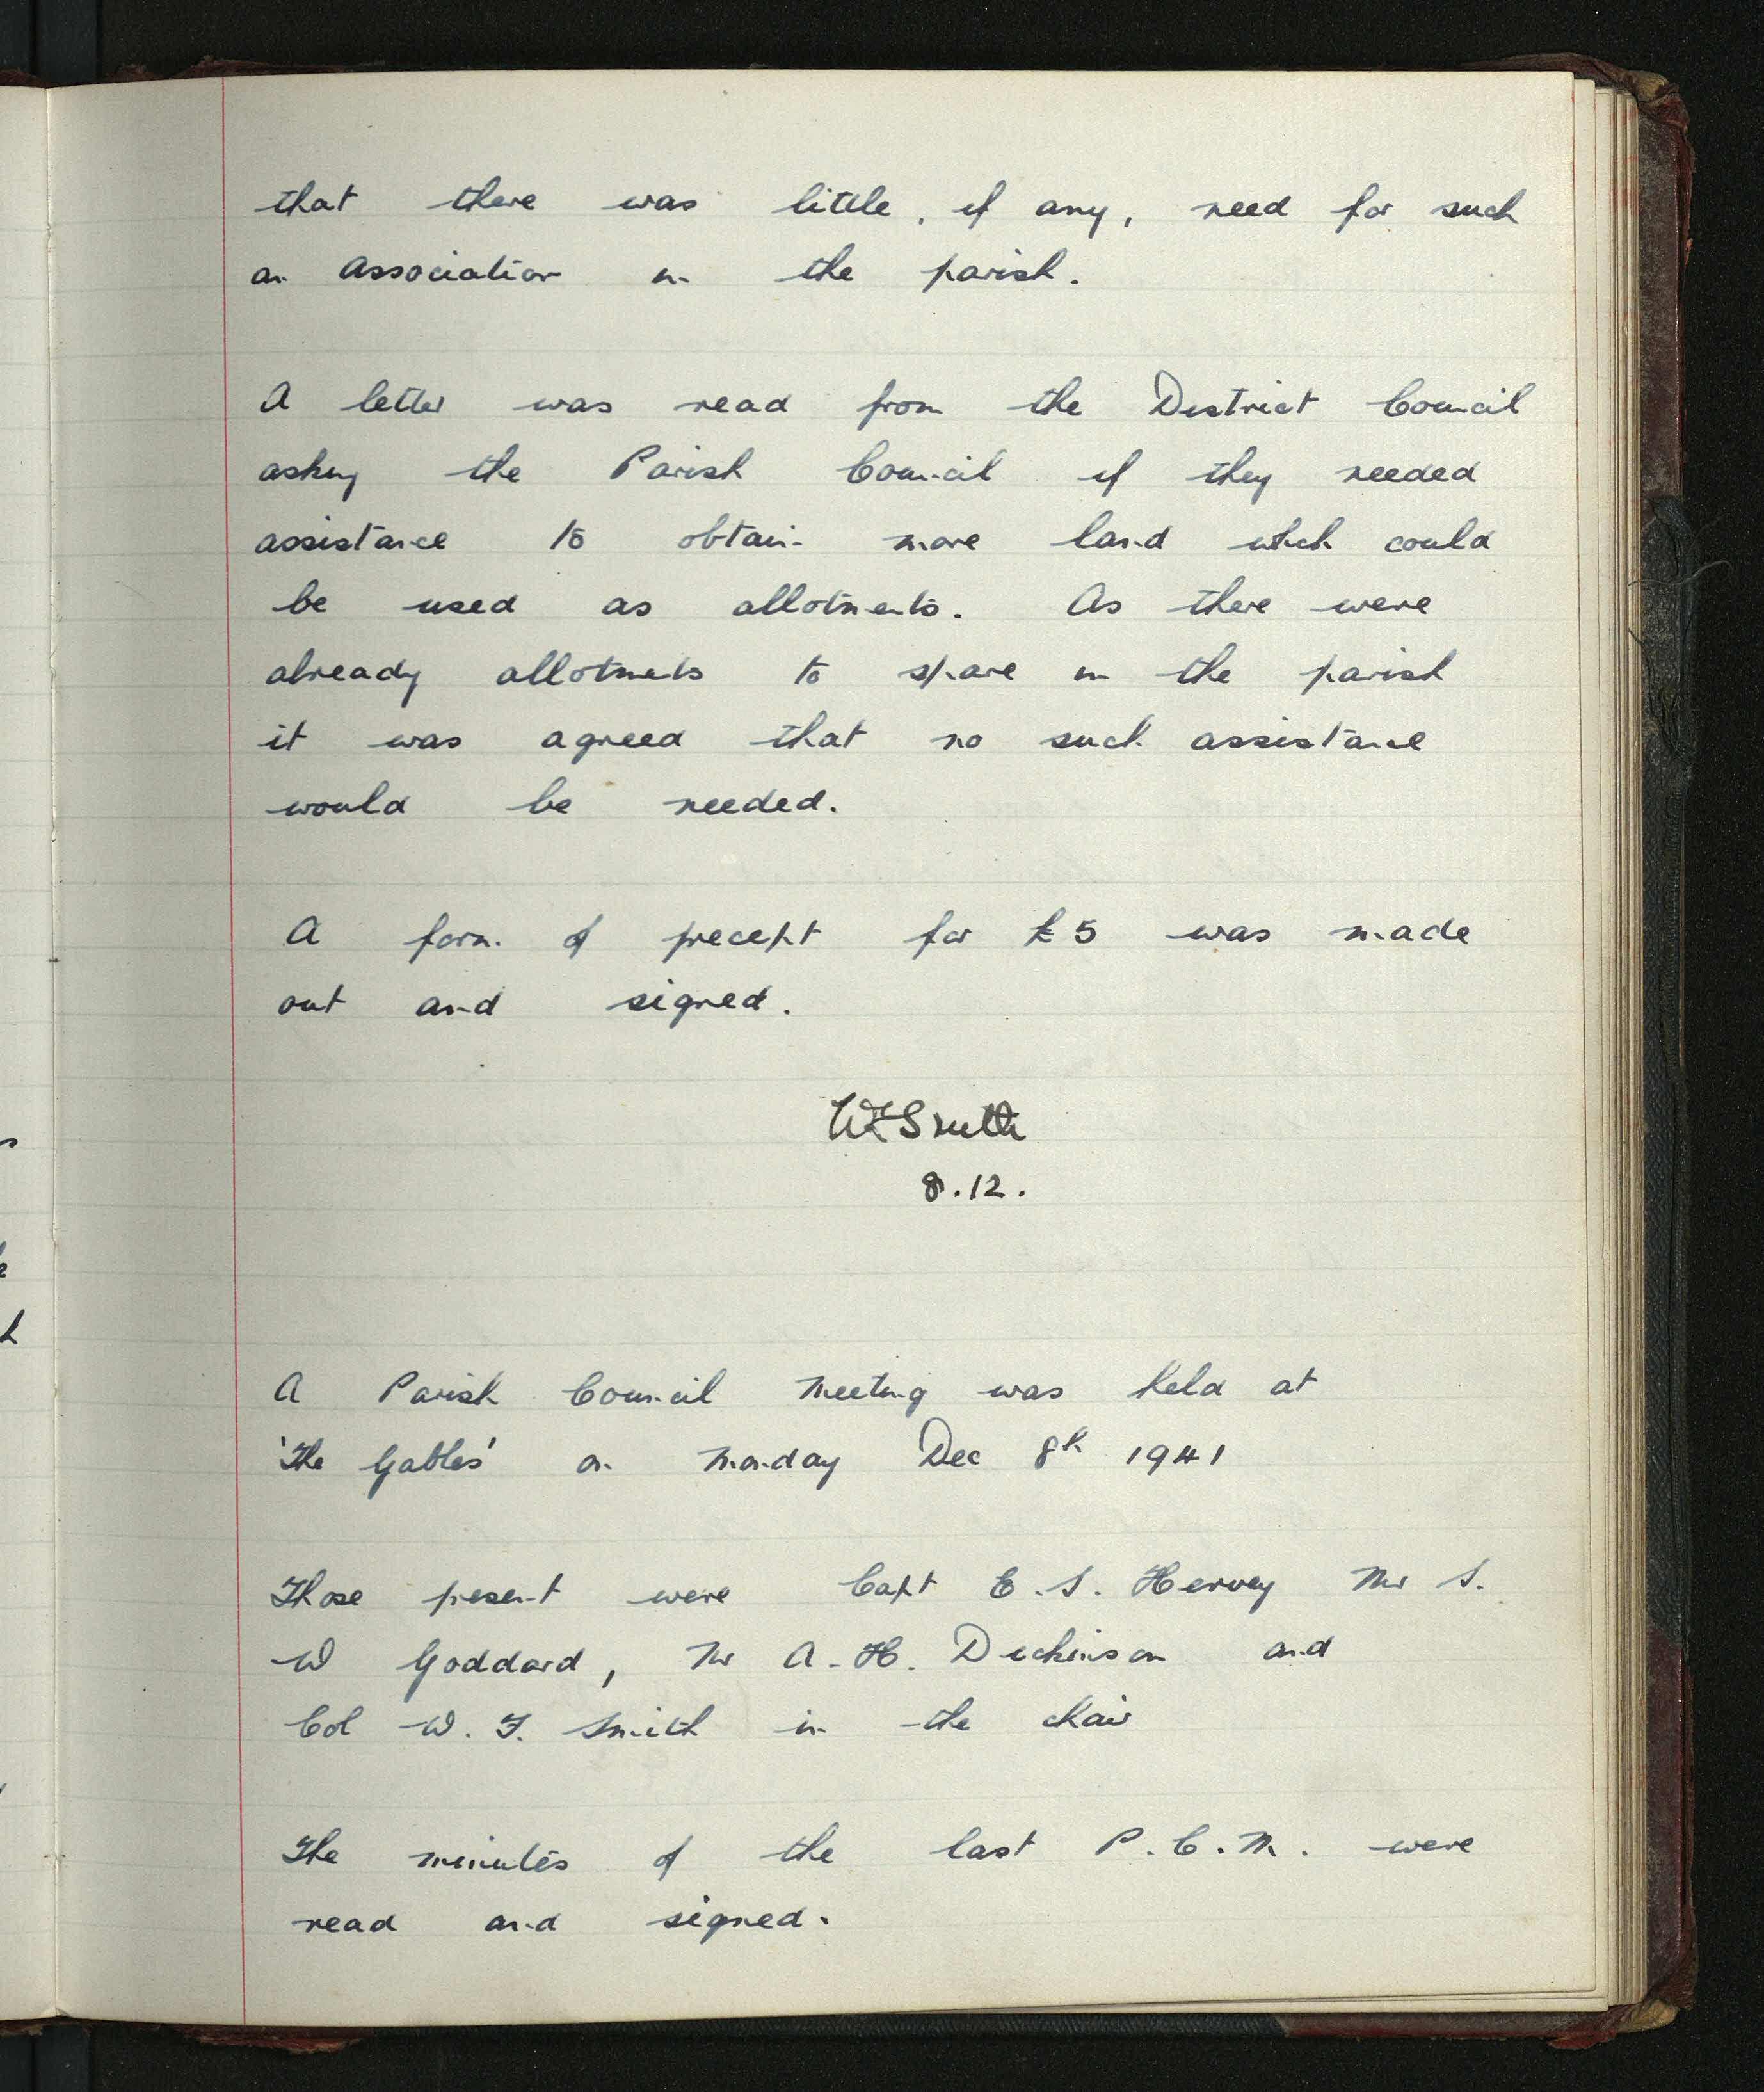 that there was little, if any, need for such
an Association in the parish.
A letter was read from the District Council
asking the Parish Council if they needed
assistance to obtain more land which could
be used as allotments. As there were
already allotments to spare in the parish
it was agreed that no such assistance
would be needed.
A form of precept for £5 was made
out and signed.
WFSmith
8.12.
A Parish Council Meeting was held at
'The Gables' on Monday Dec 8th 1941
Those present were Capt E.S. Hervey Mr S.
W Goddard, Mr A.H. Dickinson and
Col W.F. Smith in the chair
The minutes of the last P.C.M. were
read and signed.